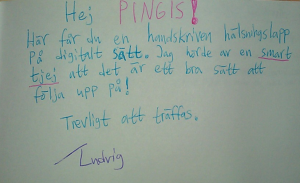 Hej PINGIS!
Här får du en handskriven hälsningslapp
på digitalt sätt. Jag hörde av en smart
tjej att det är ett bra sätt att
följa upp på!
Trevligt att träffas.
Ludvig